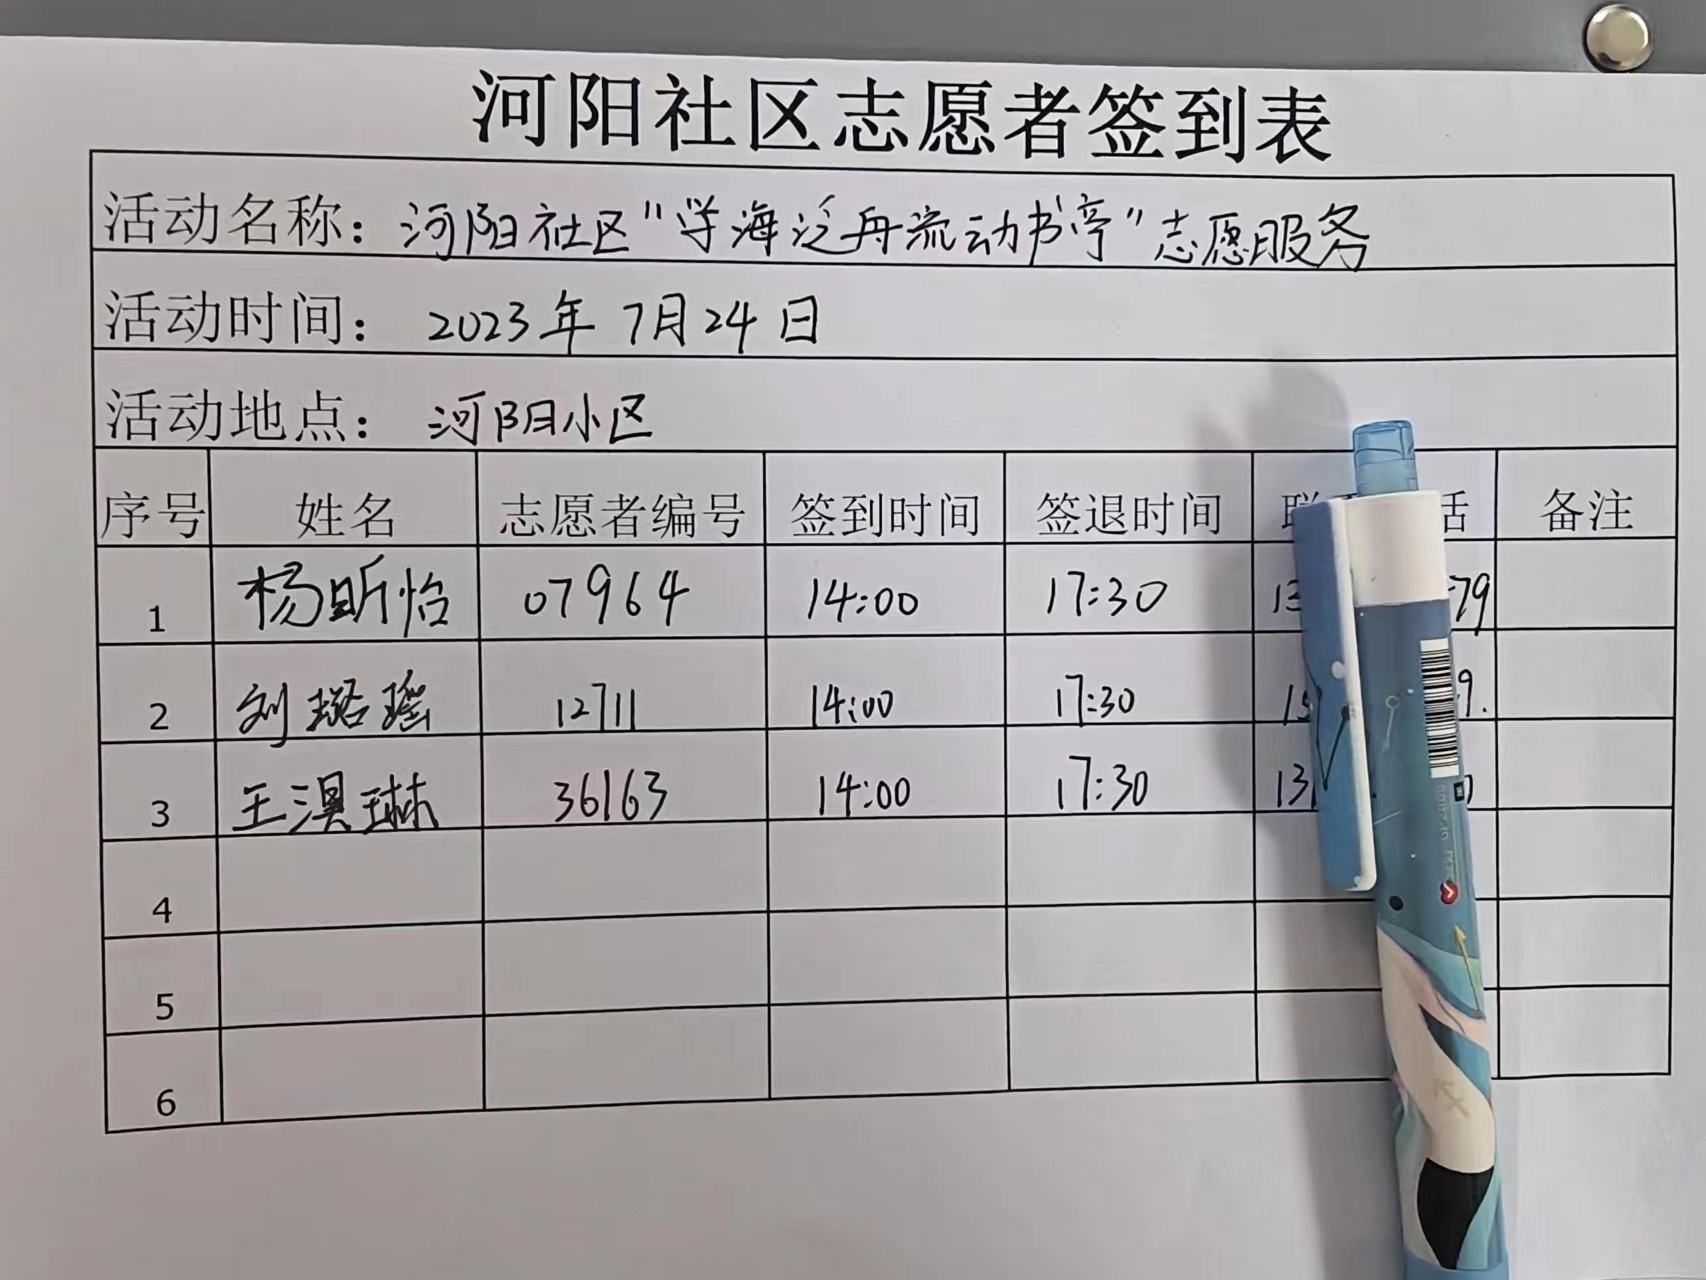 河阳社区志愿者签到表
活动名称：河阳社区"学海泛舟流动书亭"志愿服务
活动时间：2023年7月24日
活动地点：河阳小区
序号 姓名 志愿者编号 签到时间 签退时间 联 话 备注
1 杨昕怡 07964 14:00 17:30 13 79
2 刘璐瑶 12711 14:00 17:30 15 9.
3 王淏琳 36163 14:00 17:30 131 0
4
5
6